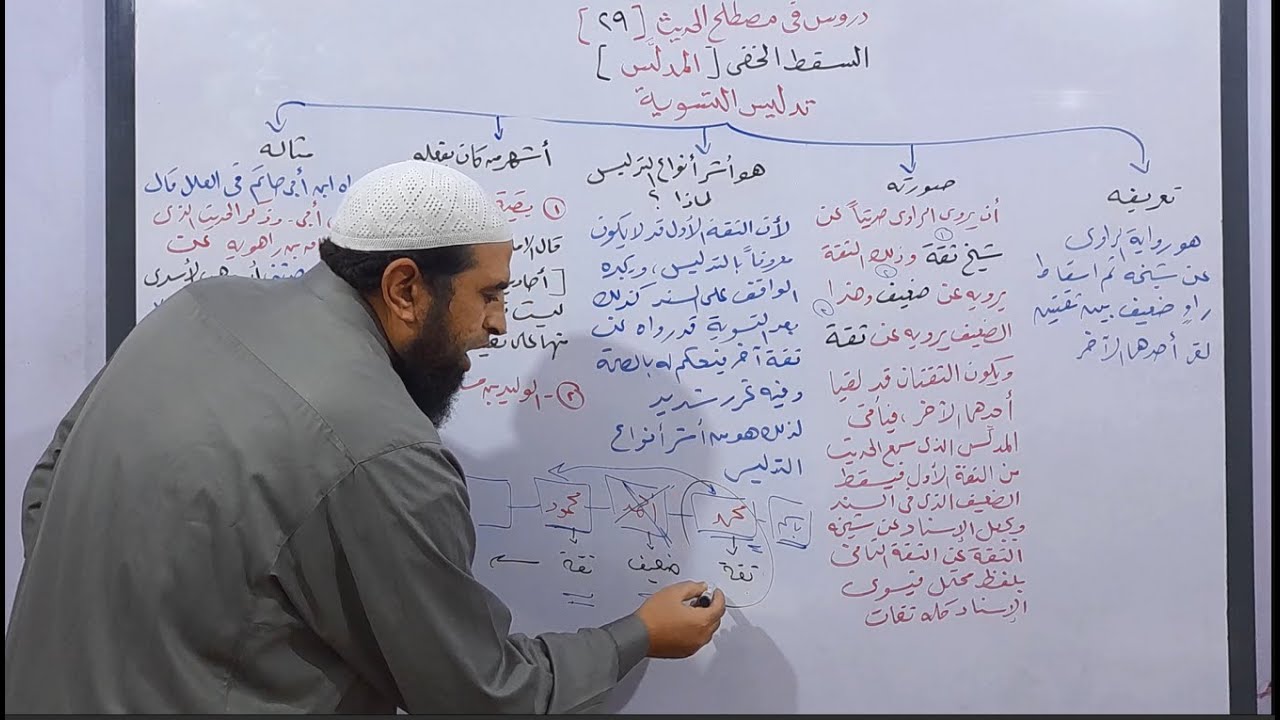 دروس فى مصطلح الحديث [٢٩]
السقط الخفى [المدلَّس]
تدليس التسوية
تعريفه
هو رواية الراوى
عن شيخه ثم اسقاط
راوٍ ضعيف بين ثقتين
لقى أحدهما الآخر
صورته
أن يروى الراوى حديثاً عن
شيخ ثقة وذلك الثقة
يرويه عن ضعيف وهذا
الضعيف يرويه عن ثقة
ويكون الثقتان قد لقيا
أحدهما الآخر، فيأتى
المدلّس الذى سمع الحديث
من الثقة الأول فيسقط
الضعيف الذى فى السند
ويجعل الإسناد عن شيخه
الثقة عن الثقة الثانى
بلفظ محتمل فيسوى
الإسناد كله ثقات
هو أشر أنواع التدليس
لماذا ؟
لأن الثقة الأول قد لا يكون
معروفاً بالتدليس، ويجده
الواقف على السند كذلك
بعد التسوية قد رواه عن
ثقة آخر فيحكم له بالصحة
وفيه غرر شديد
لذلك هو من أشر أنواع
التدليس
محمد
محمود
ثقة
ضعيف
ثقة
أشهر من كان يفعله
① بقية
قال
[أحاديث
ليست
منها على
② - الوليد بن
مثاله
ابن أبى حاتم فى العلل قال
أبى - وذكر الحديث الذى
بن راهويه عن
الأسدى